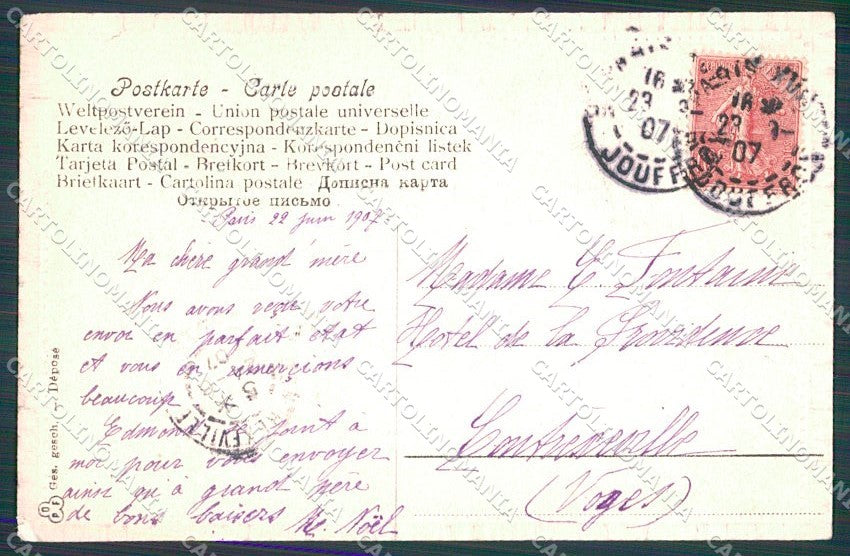 Postkarte - Carte postale
Weltpostverein - Union postale universelle
Levelező-Lap - Correspondenzkarte - Dopisnica
Karta korespondencyjna - Korespondenční listek
Tarjeta Postal - Brefkort - Brevkort - Post card
Briefkaart - Cartolina postale Дописна карта
Открытое письмо
Paris 22 juin 1907
Ma chère grand'mère
Nous avons reçu votre
envoi en parfait état
et vous en remerçions
beaucoup
Edmond se joint à
moi pour vous envoyer
ainsi qu'à grand père
de bons baisers
Noël
Madame E. Fontaine
Hotel de la Providence
Contrexeville
(Vosges)
Ges. gesch. - Déposé
16
23
07
JOUFFROY
16
23
07
CARTOLINOMANIA